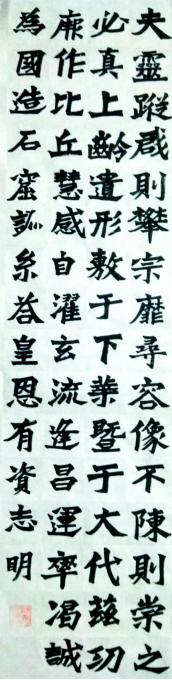 夫靈蹤啟則攀宗靡尋容像不陳則崇之
必真上齡遺形敷于下葉暨于大代茲功
厥作比丘慧感自濯玄流逢昌運率渴誠
為國造石窟系答皇恩有資志明